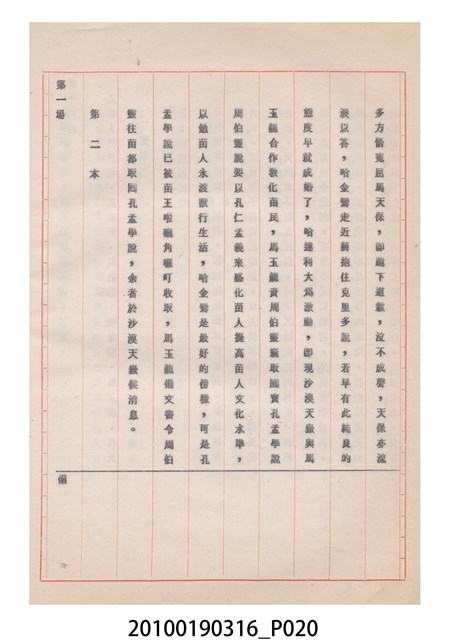 多方悟克里馬天保，即跪下道歉，泣不成聲，天保亦流
淚以答，哈金鸞走近前抱住克里多說，若早有此純良的
態度早就成婚了，哈達利大為激動，即現沙漠天嶽與馬
玉龍合作教化苗民，馬玉龍責周伯靈竊取國寶孔孟學說
周伯靈說要以孔仁孟義來感化苗人提高苗人文化水準，
以勉苗人永渡獸行生活，哈金鸞是最好的榜樣，可是孔
孟學說已被苗王啦聽角囉叮收取，馬玉龍備文書令周伯
靈往苗都取回孔孟學說，余者於沙漠天嶽候消息。
第二本
第一場
備
20100190316_P020